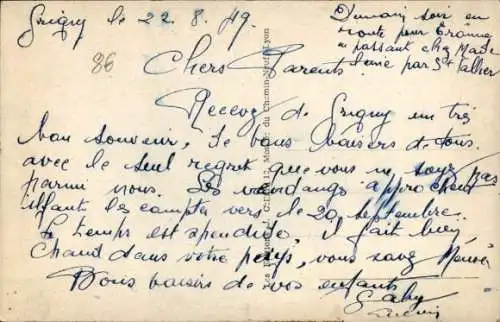 Grigny le 22.8.49.
Demain soir en
route pour Craonne
en passant chez Made
86
Chers Parents.
Recevez de Grigny un très
bon souvenir, de bons baisers de tous.
avec le seul regret que vous ne soyez pas
parmi nous. Les vendanges approchent
ils comptent vers le 20 septembre.
Le temps est splendide il fait bien
chaud dans votre pays, vous savez
Bons baisers de vos enfants
Gaby
Lucien